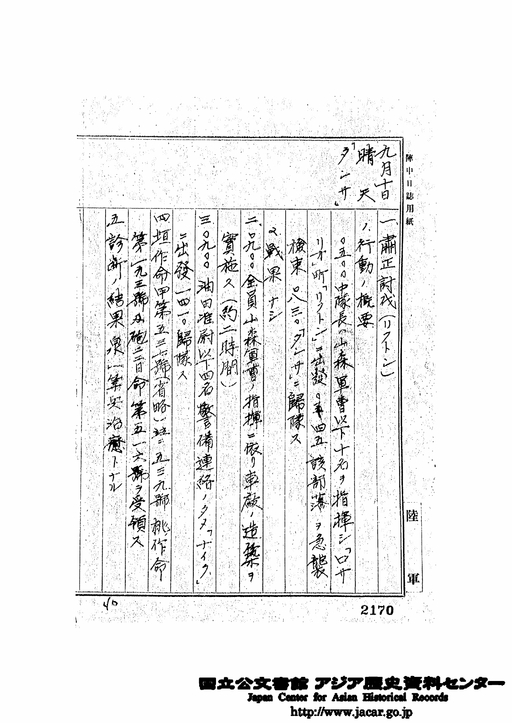 陣中日誌用紙
九月十日
晴天
「タンサ」
一、肅正討伐(リフトン)
1、行動ノ概要
〇五〇〇中隊長ハ山森軍曹以下十名ヲ指揮シ「ロサ
リオ」町「リフトン」ニ出發〇四五該部落ヲ急襲
檢索〇八三〇「タンサ」ニ歸隊ス
2、戰果ナシ
二、〇九〇〇全員山森軍曹ノ指揮ニ依リ車廠ノ造築ヲ
實施ス(約二時間)
三、〇九〇〇油田准尉以下四名警備連絡ノタメ「ナイク」
ニ出發一四一〇歸隊ス
四、垣作命甲第五三號(省略)五三九號
第一九三號砲三日命第五一六號ヲ受領ス
五、診斷ノ結果泉一等兵治癒トナル
陸軍
40
2170
国立公文書館 アジア歴史資料センター
Japan Center for Asian Historical Records
http://www.jacar.go.jp